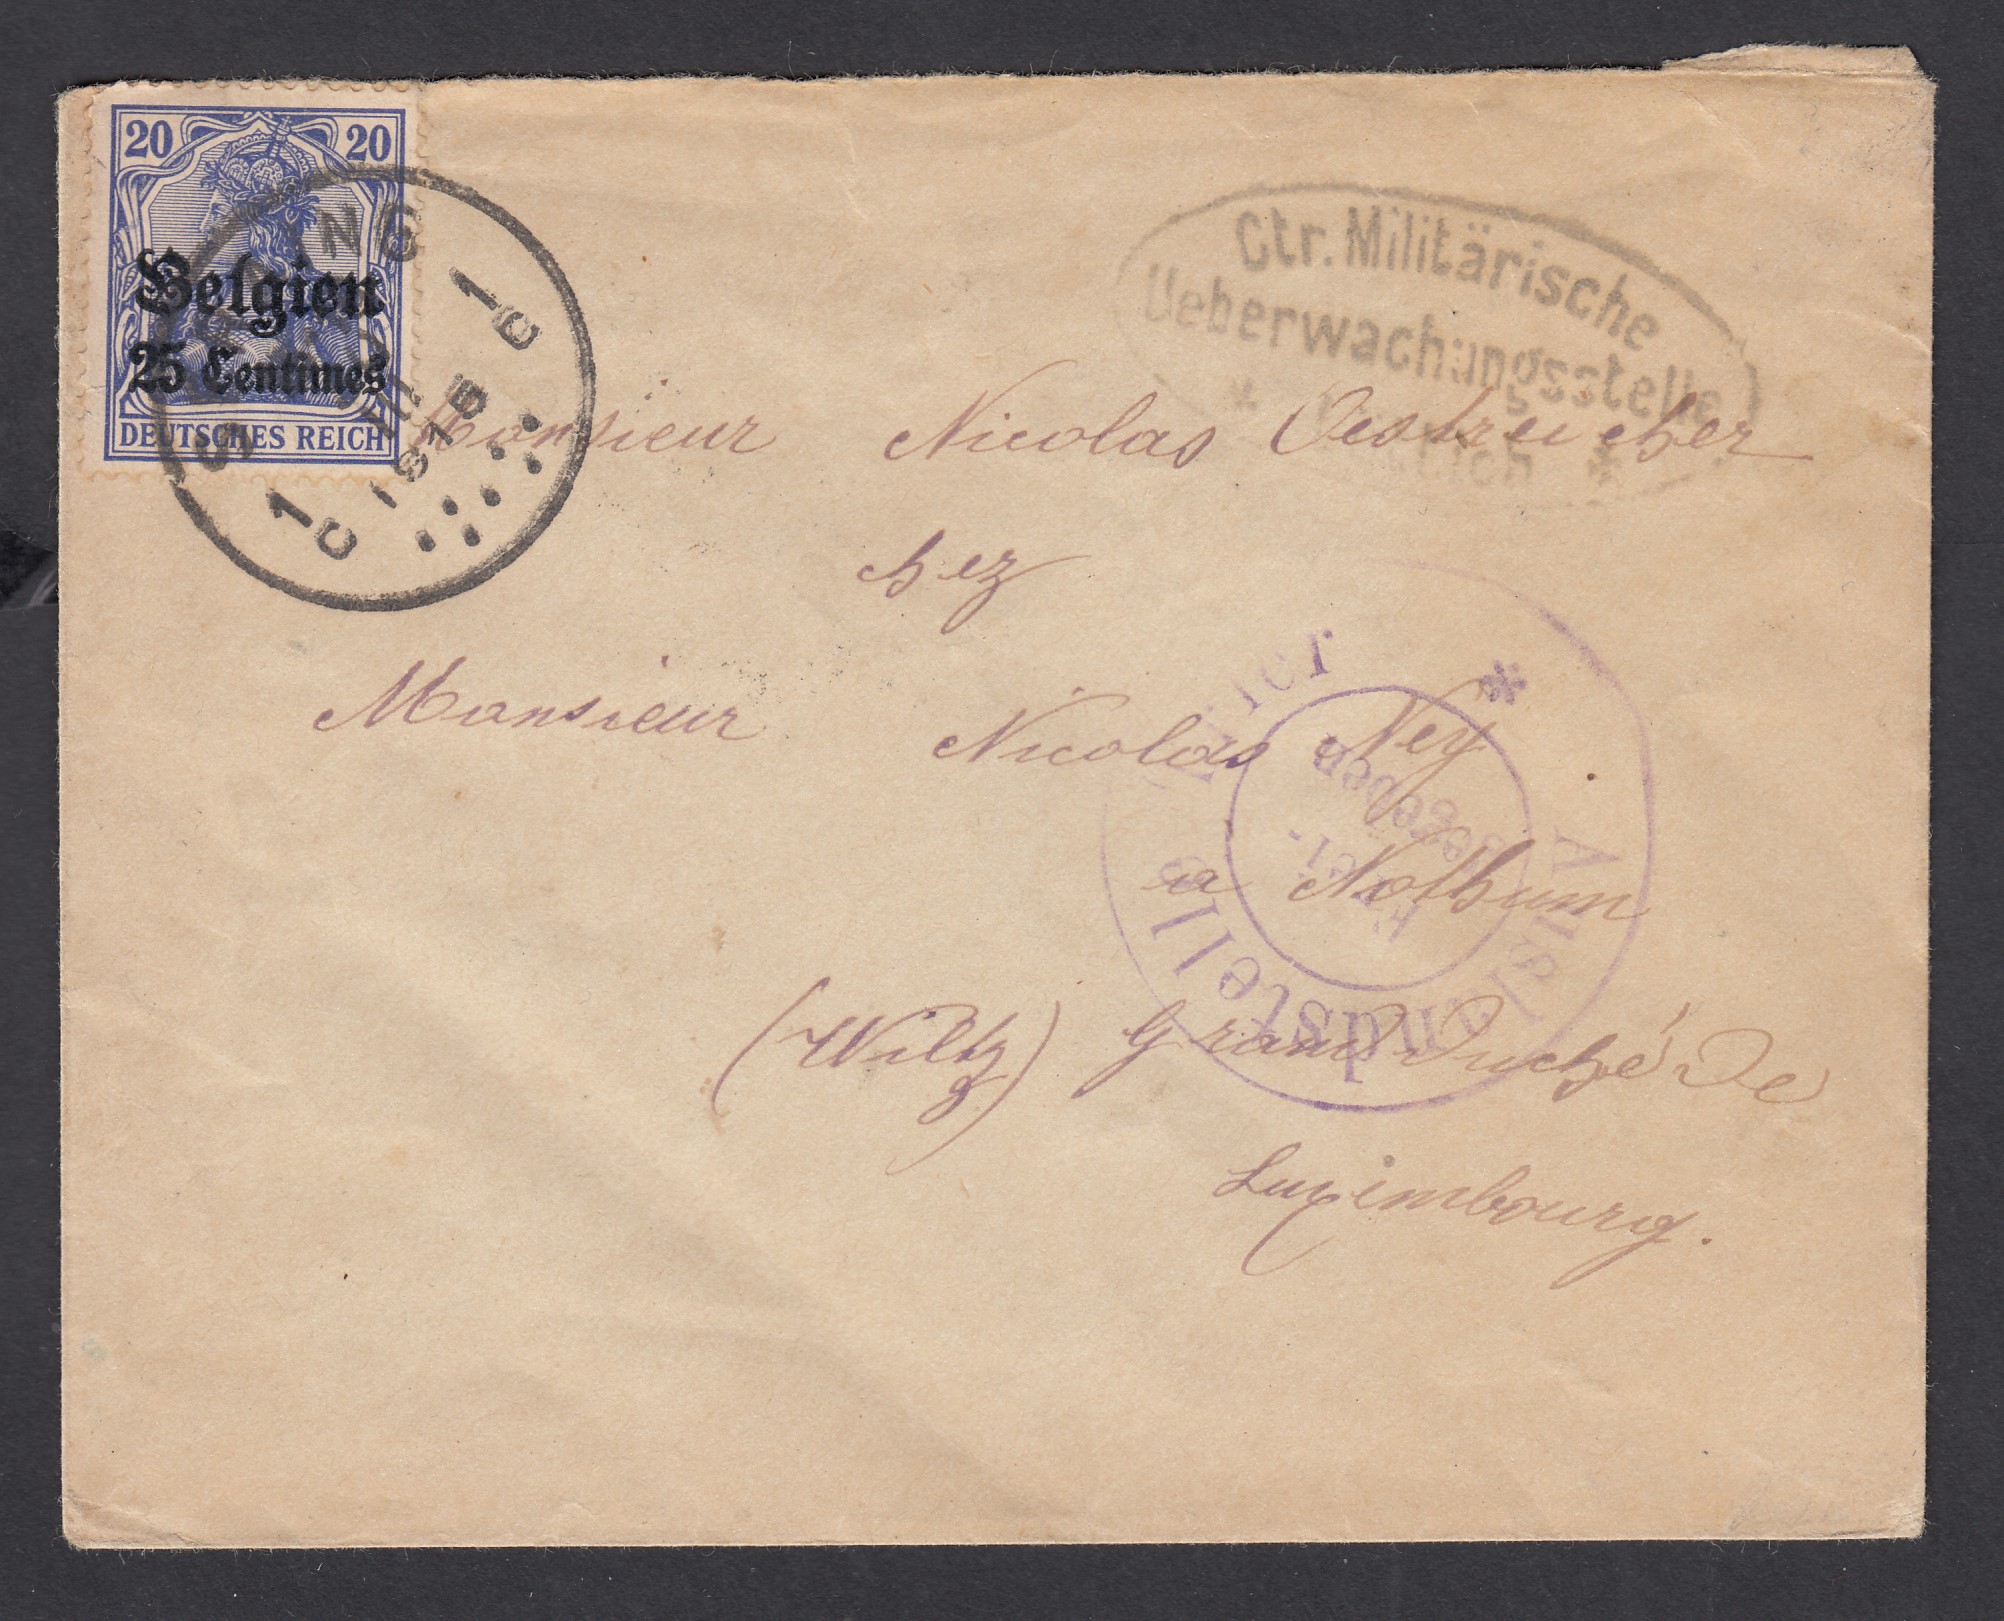 20 20
Belgien
25 Centimes
DEUTSCHES REICH
SERAING
1C 1C
1915
Ctr. Militärische
Ueberwachungsstelle
Monsieur Nicolas Oestreicher
chez
Monsieur Nicolas Ney
a Nothum
(Wiltz) Grand Duché De
Luxembourg.
Auslandstelle Trier *
Frei-
gegeben